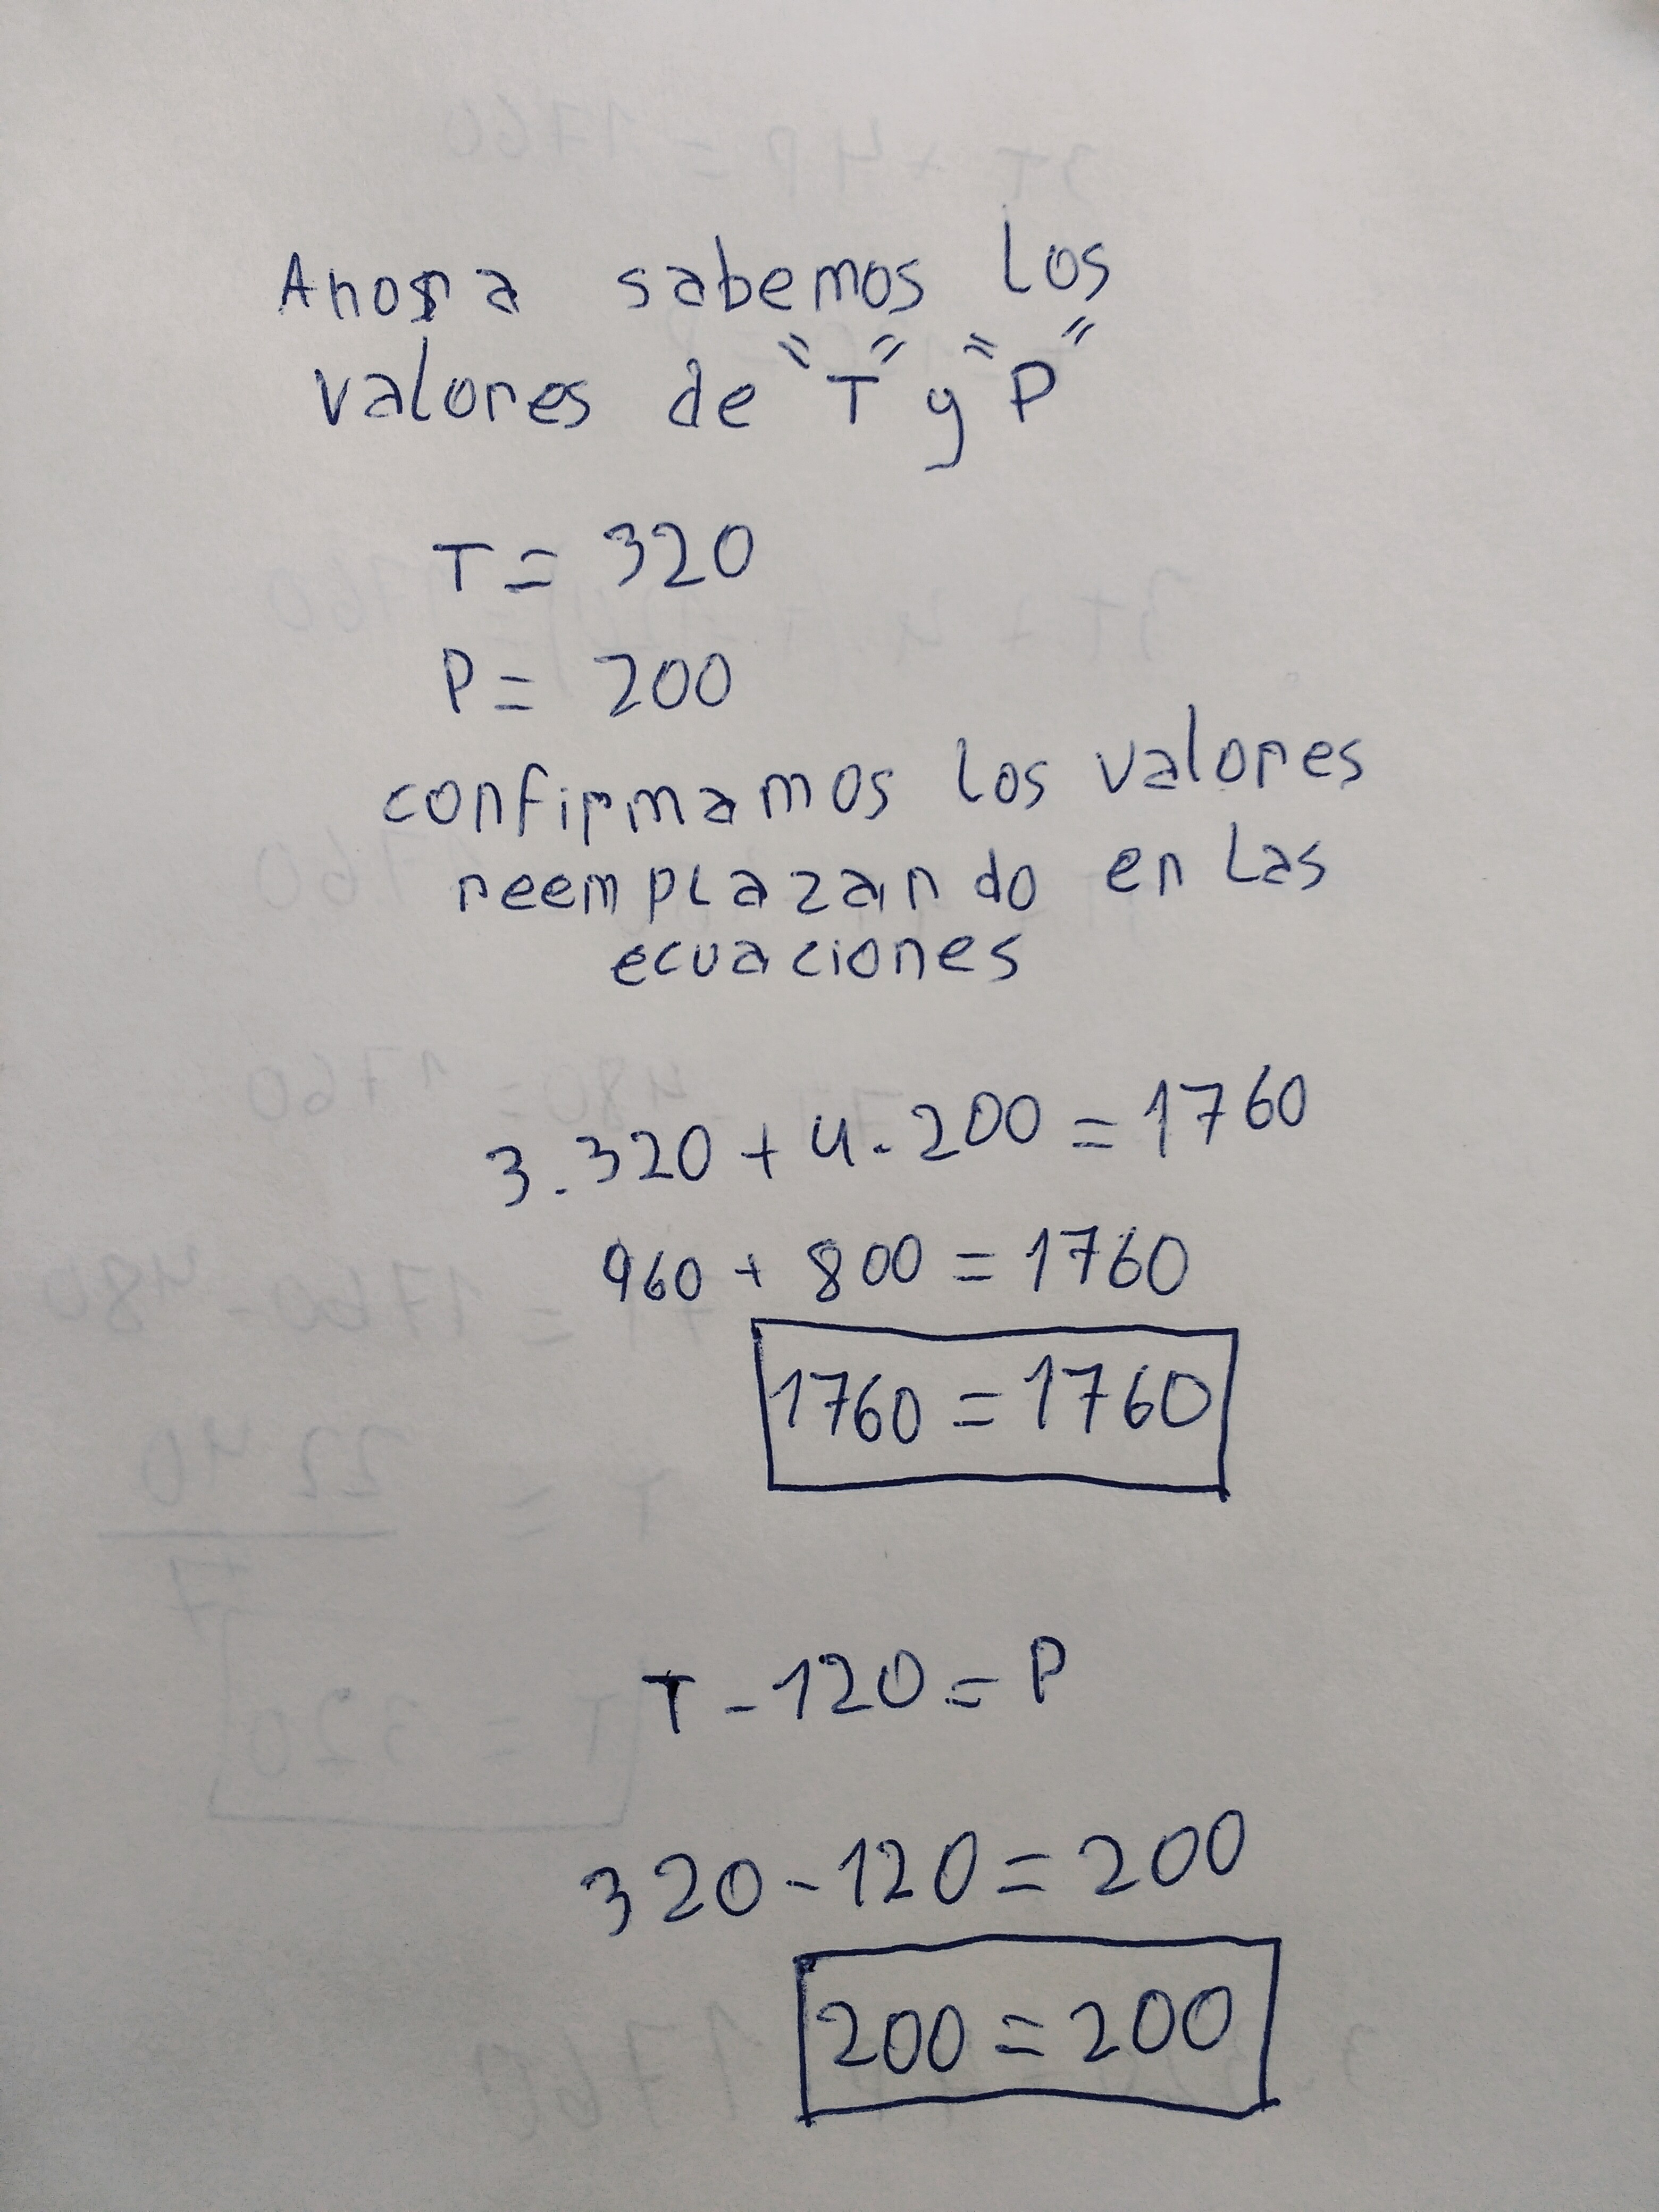 Ahora sabemos los
valores de "T" y "P"
T = 320
P = 200
confirmamos los valores
reemplazando en las
ecuaciones
3.320 + 4.200 = 1760
960 + 800 = 1760
1760 = 1760
T - 120 = P
320 - 120 = 200
200 = 200